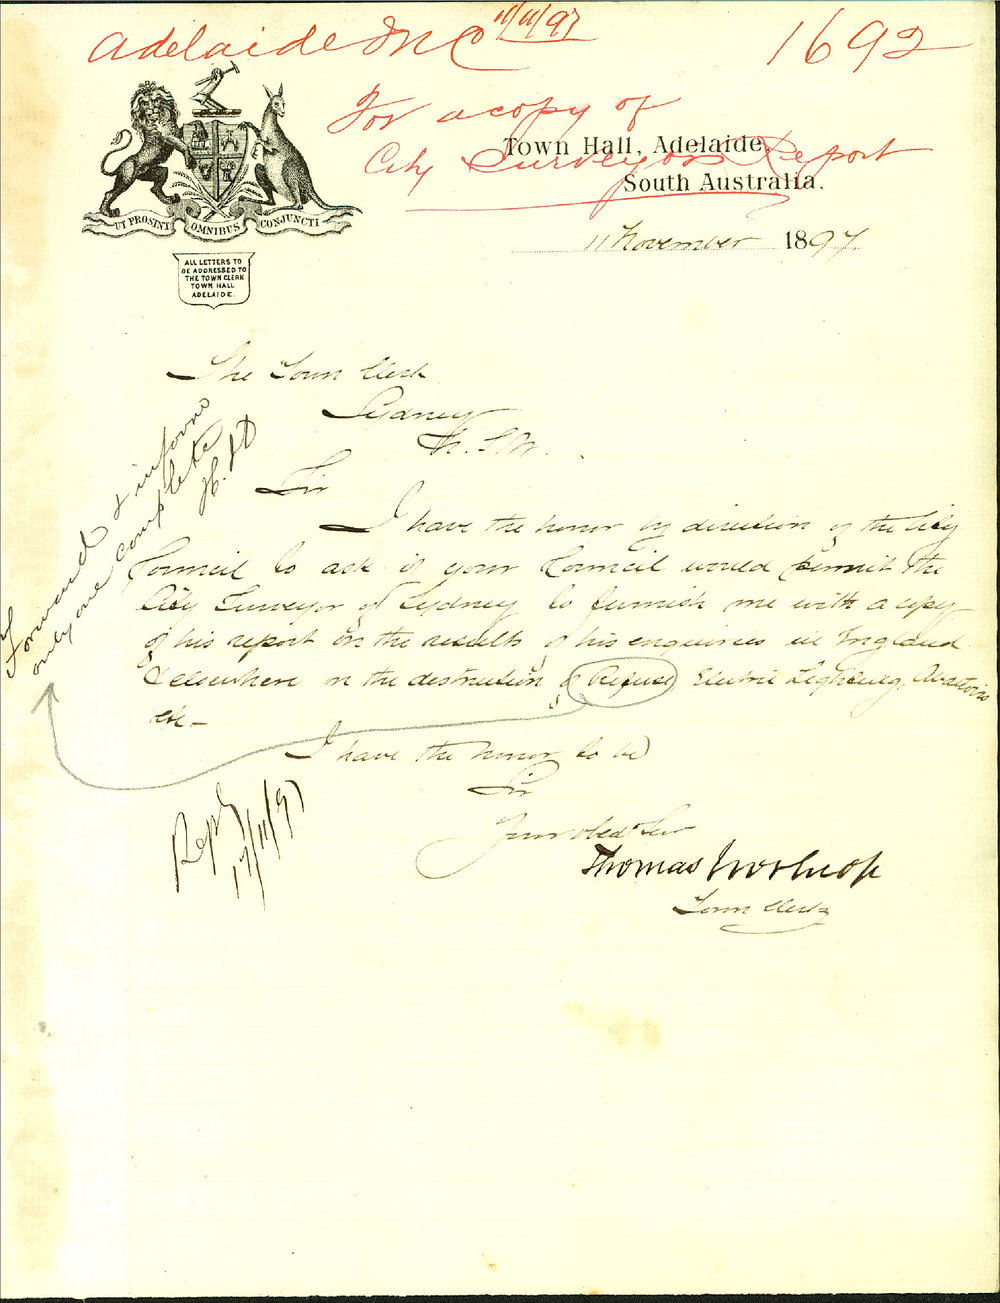 Adelaide M C 11/11/97
1692
For a copy of
City Surveyors Report
Town Hall, Adelaide,
South Australia,
11 November 1897
UT PROSINT OMNIBUS CONJUNCTI
ALL LETTERS TO
BE ADDRESSED TO
THE TOWN CLERK
TOWN HALL
ADELAIDE.
The Town Clerk
Sydney
N.S.W.
Sir
I have the honor by direction of the City
Council to ask if your Council would permit the
City Surveyor of Sydney to furnish me with a copy
of his report on the results of his enquiries in England
& elsewhere on the destruction of Refuse, Electric Lighting, Abattoirs
etc -
I have the honor to be
Sir
Your obedt Serv
Thomas Worsnop
Town Clerk
Forward & inform
only one complete
Reply
17/11/97